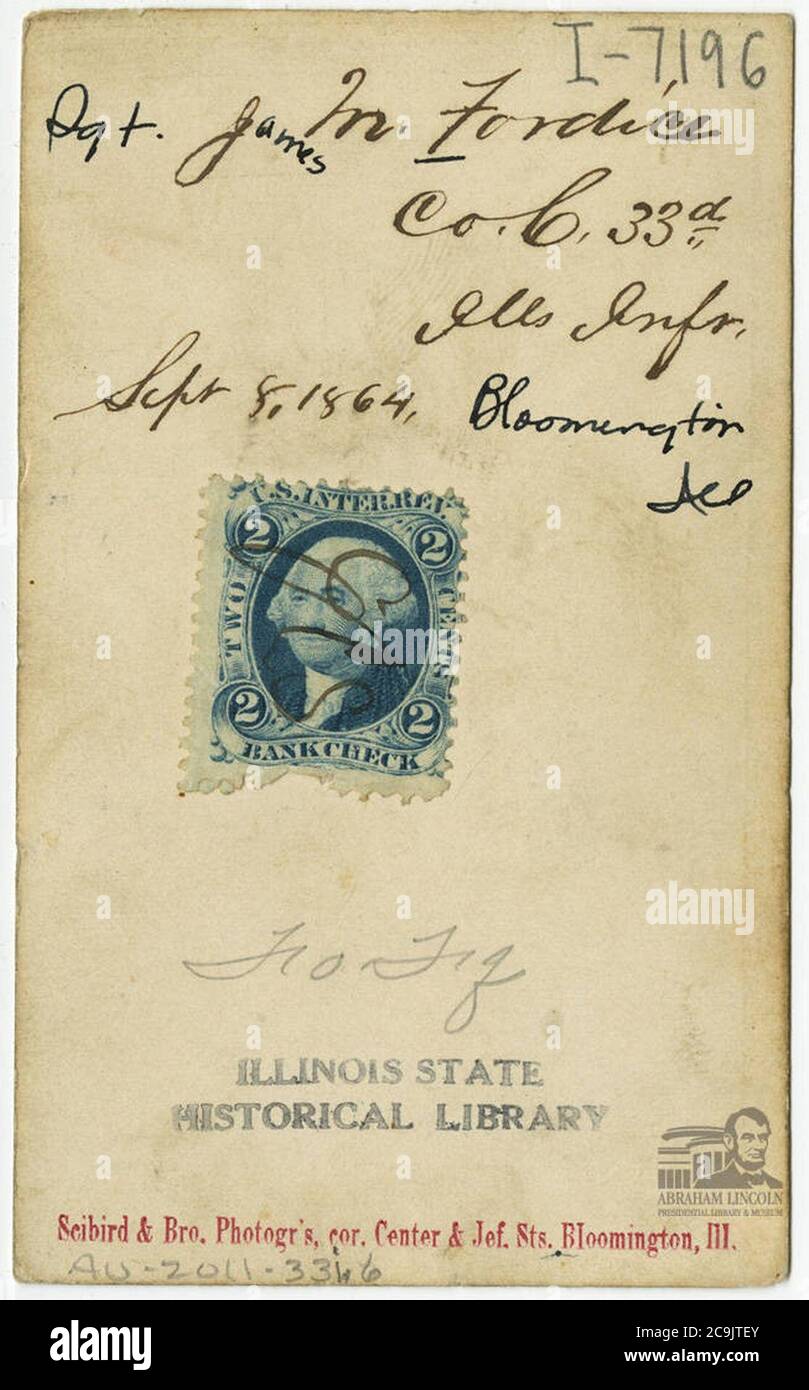 I-7196
Sgt. James M. Fordice
Co. C. 33d
Ills Infr.
Sept 8, 1864,
Bloomington
Ill
U.S. INTER. REV.
2 2
TWO CENTS
2 2
BANK CHECK
ILLINOIS STATE
HISTORICAL LIBRARY
ABRAHAM LINCOLN
PRESIDENTIAL LIBRARY & MUSEUM
Scibird & Bro. Photogr's, cor. Center & Jef. Sts. Bloomington, Ill.
AV-2011-3346
alamy
alamy
Image ID: 2C9JTEY
www.alamy.com